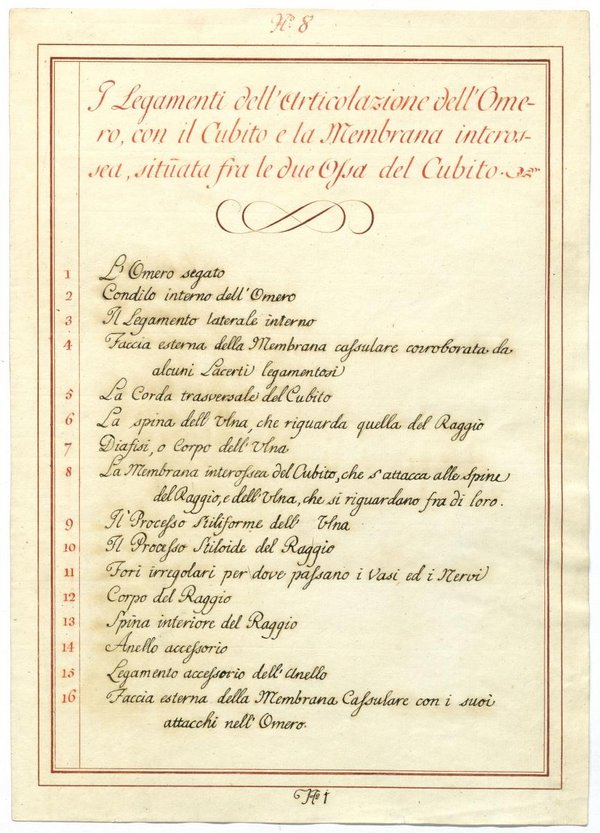 No. 8
I Legamenti dell'Articolazione dell'Ome-
ro, con il Cubito e la Membrana interos-
sea, situata fra le due Ossa del Cubito.
1 L'Omero segato
2 Condilo interno dell'Omero
3 Il Legamento laterale interno
4 Faccia esterna della Membrana cassulare corroborata da
alcuni Lacerti legamentosi
5 La Corda trasversale del Cubito
6 La spina dell'Ulna, che riguarda quella del Raggio
7 Diafisi, o Corpo dell'Ulna
8 La Membrana interossea del Cubito, che s'attacca alle Spine
del Raggio, e dell'Ulna, che si riguardano fra di loro.
9 Il Processo stiliforme dell' Ulna
10 Il Processo stiloide del Raggio
11 Fori irregolari per dove passano i Vasi ed i Nervi
12 Corpo del Raggio
13 Spina interiore del Raggio
14 Anello accessorio
15 Legamento accessorio dell'Anello
16 Faccia esterna della Membrana Cassulare con i suoi
attacchi nell'Omero.
No. 1